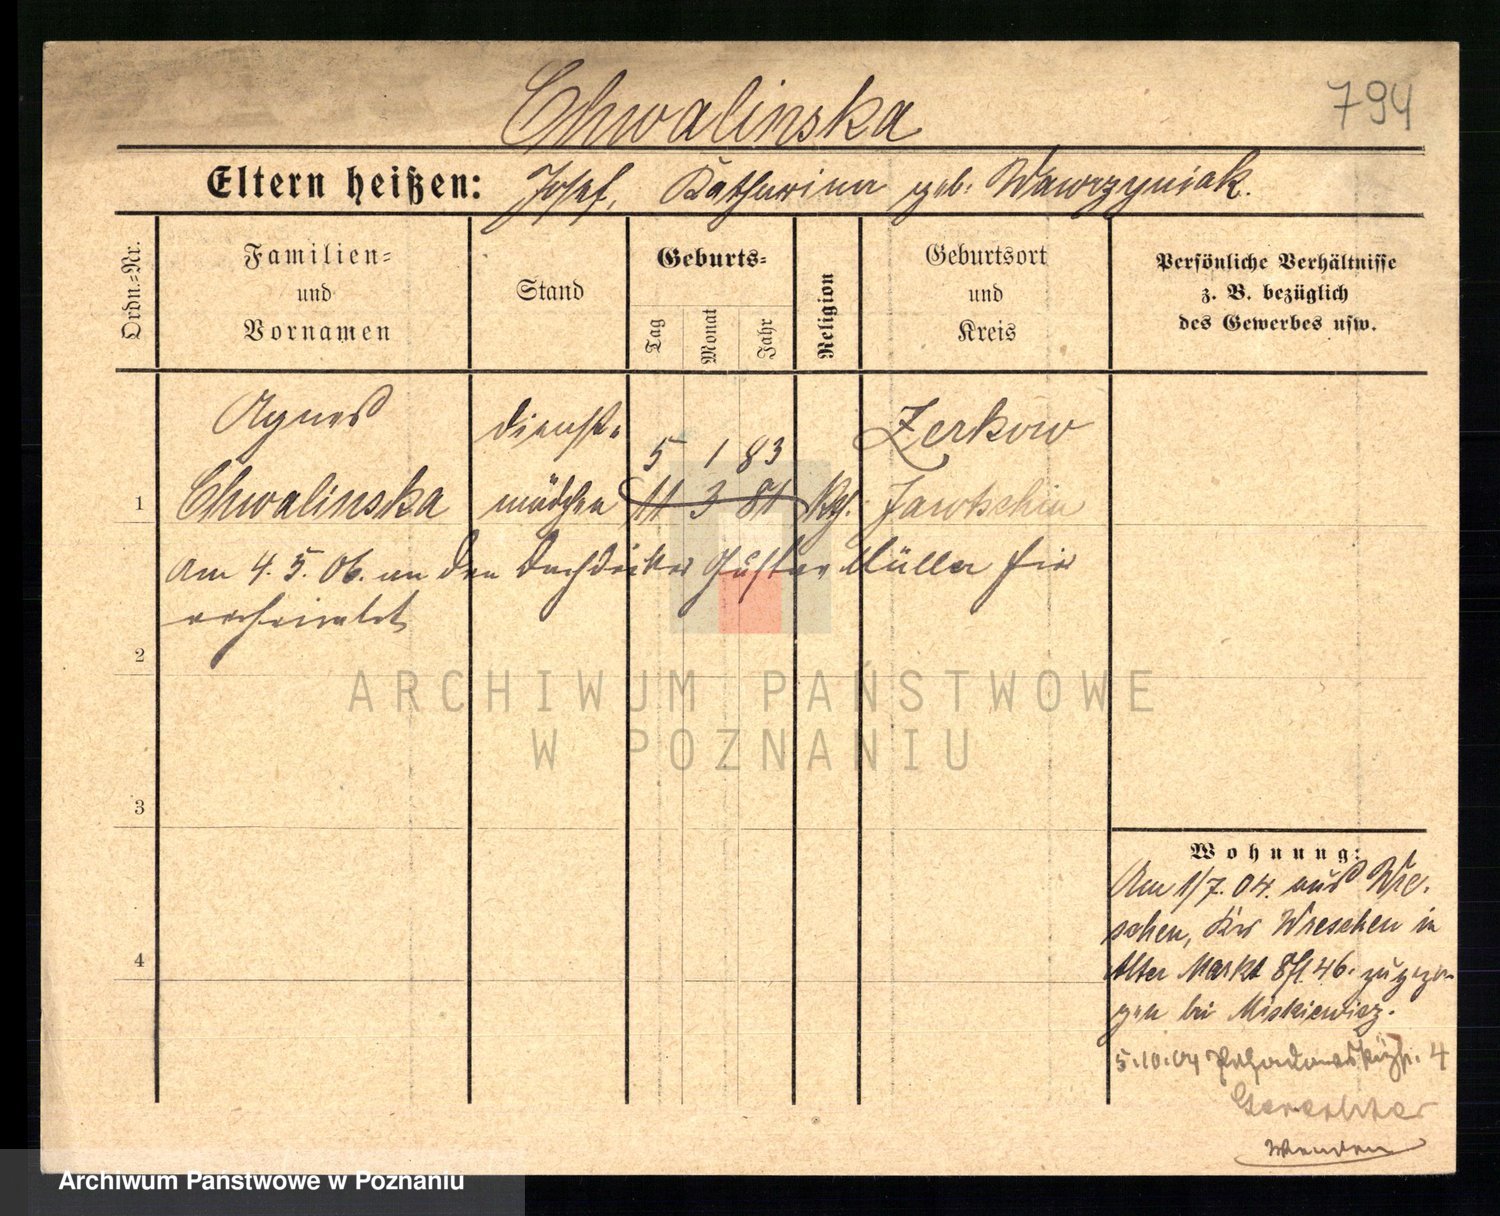 Chwalinska
794
Eltern heißen: Josef, Katharina geb. Wawrzyniak.
Ordn.=Nr.
Familien=
und
Vornamen
Stand
Geburts=
Tag
Monat
Jahr
Religion
Geburtsort
und
Kreis
Persönliche Verhältnisse
z. B. bezüglich
des Gewerbes usw.
1
Agnes
Chwalinska
Dienst=
mädchen
5 1 83
11 3 81
Kth.
Zerkow
Jarotschin
Am 4. 5. 06. an den Dachdecker Gustav Müller hier
verheiratet
2
3
4
Wohnung:
Am 1/7. 04. aus Wre-
schen, Krs Wreschen in
Alter Markt 8/1 46. zugezo-
gen bei Miskiewicz.
5.10.04 4
Wenden
ARCHIWUM PAŃSTWOWE
W POZNANIU
Archiwum Państwowe w Poznaniu